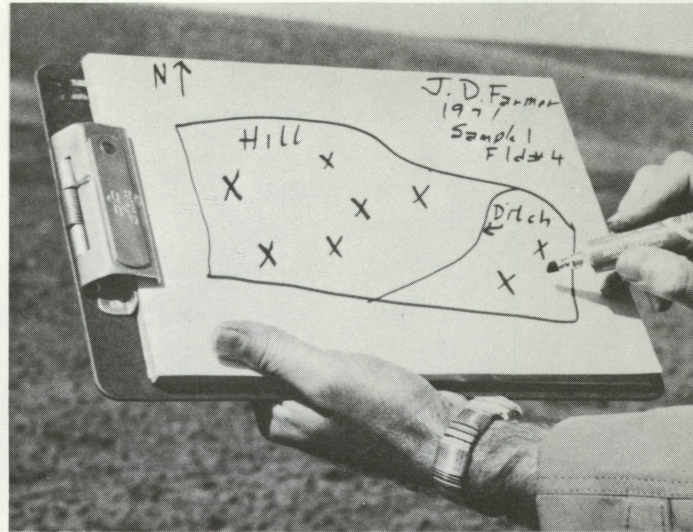 N
J. D. Farmer
1971
Sample 1
Fld#4
Hill
X
X
X
X
Ditch
X
X
X
X